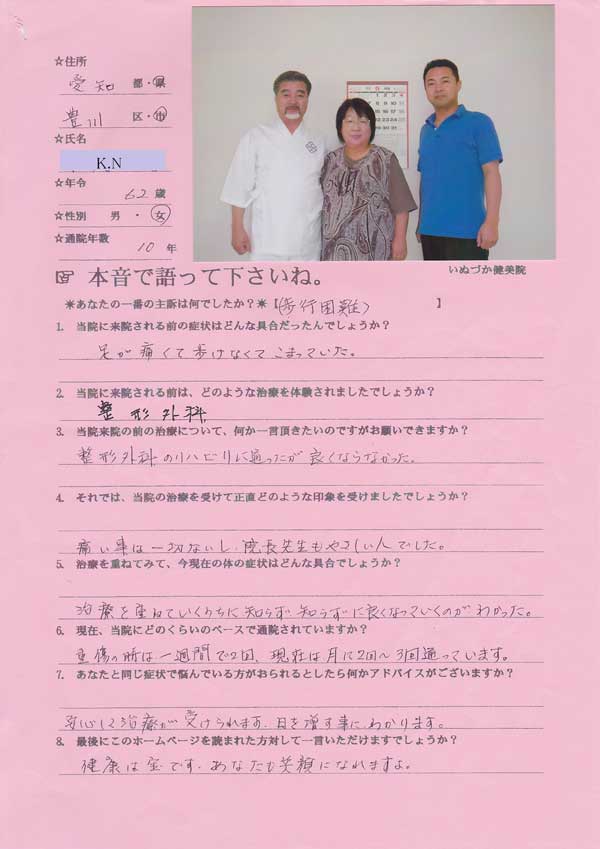 ☆住所
愛知 都・県
豊川 区・市
☆氏名
K.N
☆年令
62 歳
☆性別 男・女
☆通院年数
10 年
いぬづか健美院
本音で語って下さいね。
＊あなたの一番の主訴は何でしたか？＊【(歩行困難) 】
1. 当院に来院される前の症状はどんな具合だったんでしょうか？
足が痛くて歩けなくてこまっていた。
2. 当院に来院される前は、どのような治療を体験されましたでしょうか？
整形外科
3. 当院来院の前の治療について、何か一言頂きたいのですがお願いできますか？
整形外科のリハビリに通ったが良くならなかった。
4. それでは、当院の治療を受けて正直どのような印象を受けましたでしょうか？
痛い事は一切ないし、院長先生もやさしい人でした。
5. 治療を重ねてみて、今現在の体の症状はどんな具合でしょうか？
治療を重ねていくうちに知らず知らずに良くなっていくのがわかった。
6. 現在、当院にどのくらいのペースで通院されていますか？
重傷の時は一週間で2回、現在は月に2回～3回通っています。
7. あなたと同じ症状で悩んでいる方がおられるとしたら何かアドバイスがございますか？
安心して治療が受けられます。日を増す事にわかります。
8. 最後にこのホームページを読まれた方対して一言いただけますでしょうか？
健康は宝です。あなたも笑顔になれますよ。